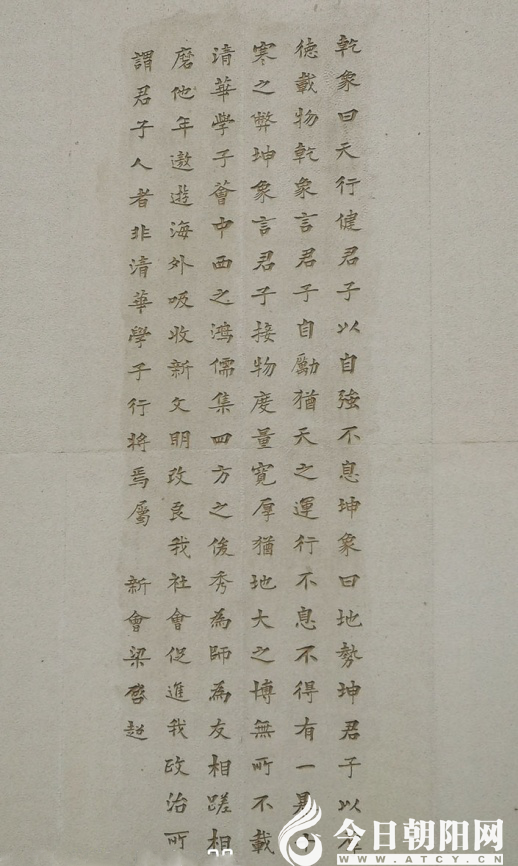 乾象曰天行健君子以自強不息坤象曰地勢坤君子以厚
德載物乾象言君子自勵猶天之運行不息不得有一暴十
寒之弊坤象言君子接物度量寬厚猶地大之博無所不載
清華學子薈中西之鴻儒集四方之俊秀為師為友相蹉相
磨他年遨遊海外吸收新文明改良我社會促進我政治所
謂君子人者非清華學子行將焉屬 新會梁啓超
今日朝阳网
WWW.ATCY.CN